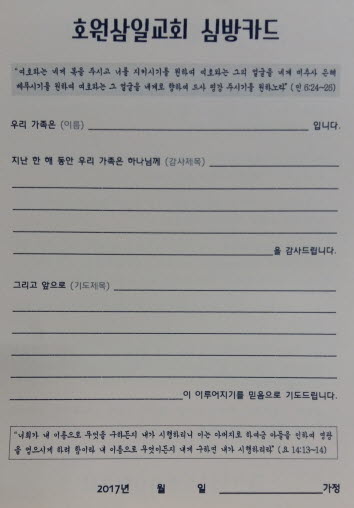 호원삼일교회 심방카드
"여호와는 네게 복을 주시고 너를 지키시기를 원하며 여호와는 그의 얼굴을 네게 비추사 은혜
베푸시기를 원하며 여호와는 그 얼굴을 네게로 향하여 드사 평강 주시기를 원하노라" (민 6:24~26)
우리 가족은 (이름) 입니다.
지난 한 해 동안 우리 가족은 하나님께 (감사제목)
을 감사드립니다.
그리고 앞으로 (기도제목)
이 이루어지기를 믿음으로 기도드립니다.
"너희가 내 이름으로 무엇을 구하든지 내가 시행하리니 이는 아버지로 하여금 아들을 인하여 영광
을 얻으시게 하려 함이라 내 이름으로 무엇이든지 내게 구하면 내가 시행하리라" (요 14:13~14)
2017년 월 일 가정